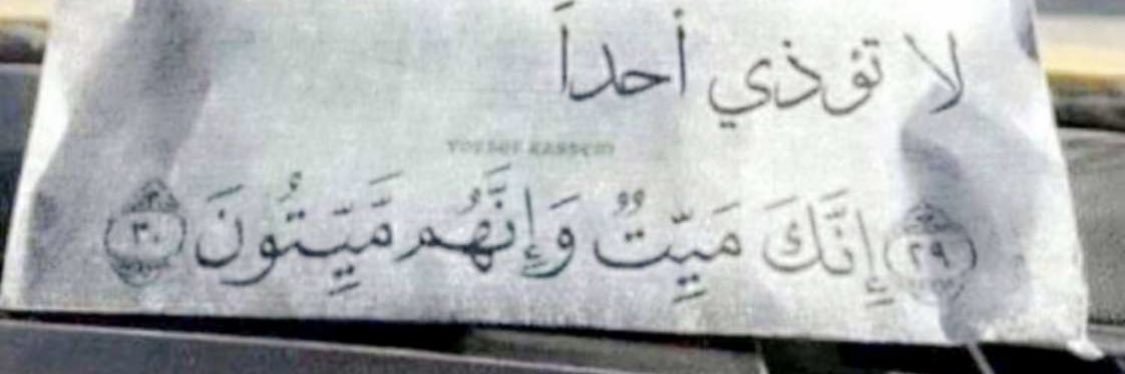 لا تؤذي أحداً
YOUSEF KASSEM
٢٩ إِنَّكَ مَيِّتٌ وَإِنَّهُم مَّيِّتُونَ ٣٠